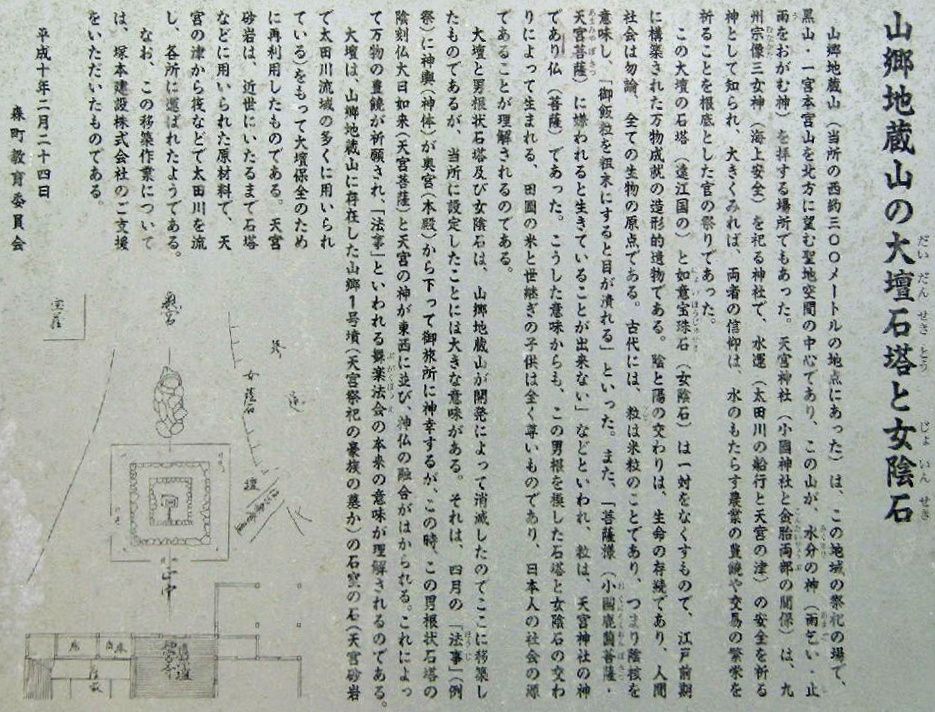 山郷地蔵山の大壇石塔と女陰石
だいだんせきとう じょいんせき
山郷地蔵山（当所の西約三〇〇メートルの地点にあった）は、この地域の祭祀の場で、
黒山・一宮本宮山を北方に望む聖地空間の中心であり、この山が、水分の神（雨乞い・止
雨をおがむ神）を拝する場所でもあった。天宮神社（小國神社と金胎両部の関係）は、九
州宗像三女神（海上安全）を祀る神社で、水運（太田川の船行と天宮の津）の安全を祈る
神として知られ、大きくみれば、両者の信仰は、水のもたらす農業の豊饒や交易の繁栄を
祈ることを根底とした宮の祭りであった。
この大壇の石塔（遠江国の）と如意宝珠石（女陰石）は一対をなくすもので、江戸前期
に構築された万物成就の造形的遺物である。陰と陽の交わりは、生命の存続であり、人間
社会は勿論、全ての生物の原点である。古代には、粒は米粒のことであり、つまり陰核を
意味し、「御飯粒を粗末にすると目が潰れる」といった。また、「菩薩様（小國鹿薗菩薩・
天宮菩薩）に嫌われると生きていることが出来ない」などといわれ、粒は、天宮神社の神
であり仏（菩薩）であった。こうした意味からも、この男根を模した石塔と女陰石の交わ
りによって生まれる、田圃の米と世継ぎの子供は全く尊いものであり、日本人の社会の源
であることが理解されるのである。
大壇と男根状石塔及び女陰石は、山郷地蔵山が開発によって消滅したのでここに移築し
たものであるが、当所に設定したことには大きな意味がある。それは、四月の「法事」（例
祭）に神輿（神体）が奥宮（本殿）から下って御旅所に神幸するが、この時、この男根状石塔の
陰刻仏大日如来（天宮菩薩）と天宮の神が東西に並び、神仏の融合がはかられる。これによっ
て万物の豊饒が祈願され、「法事」といわれる舞楽法会の本来の意味が理解されるのである。
大壇は、山郷地蔵山に存在した山郷1号墳（天宮祭祀の豪族の墓か）の石室の石（天宮砂岩
で太田川流域の多くに用いられ
ている）をもって大壇保全のため
に再利用したものである。天宮
砂岩は、近世にいたるまで石塔
などに用いられた原材料で、天
宮の津から筏などで太田川を流
し、各所に運ばれたようである。
なお、この移築作業について
は、塚本建設株式会社のご支援
をいただいたものである。
平成十年二月二十四日
森町教育委員会
奥宮
女陰石
壇
中